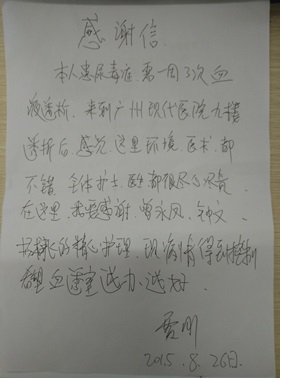 感谢信
本人患尿毒症 需一周3次血
液透析。来到广州现代医院九楼
透析后，感觉这里环境、医术都
不错，全体护士、医生都很尽心尽责。
在这里，我要感谢：曾永凤、
的精心护理，现病情得到控制
血透室
2015.8.26日